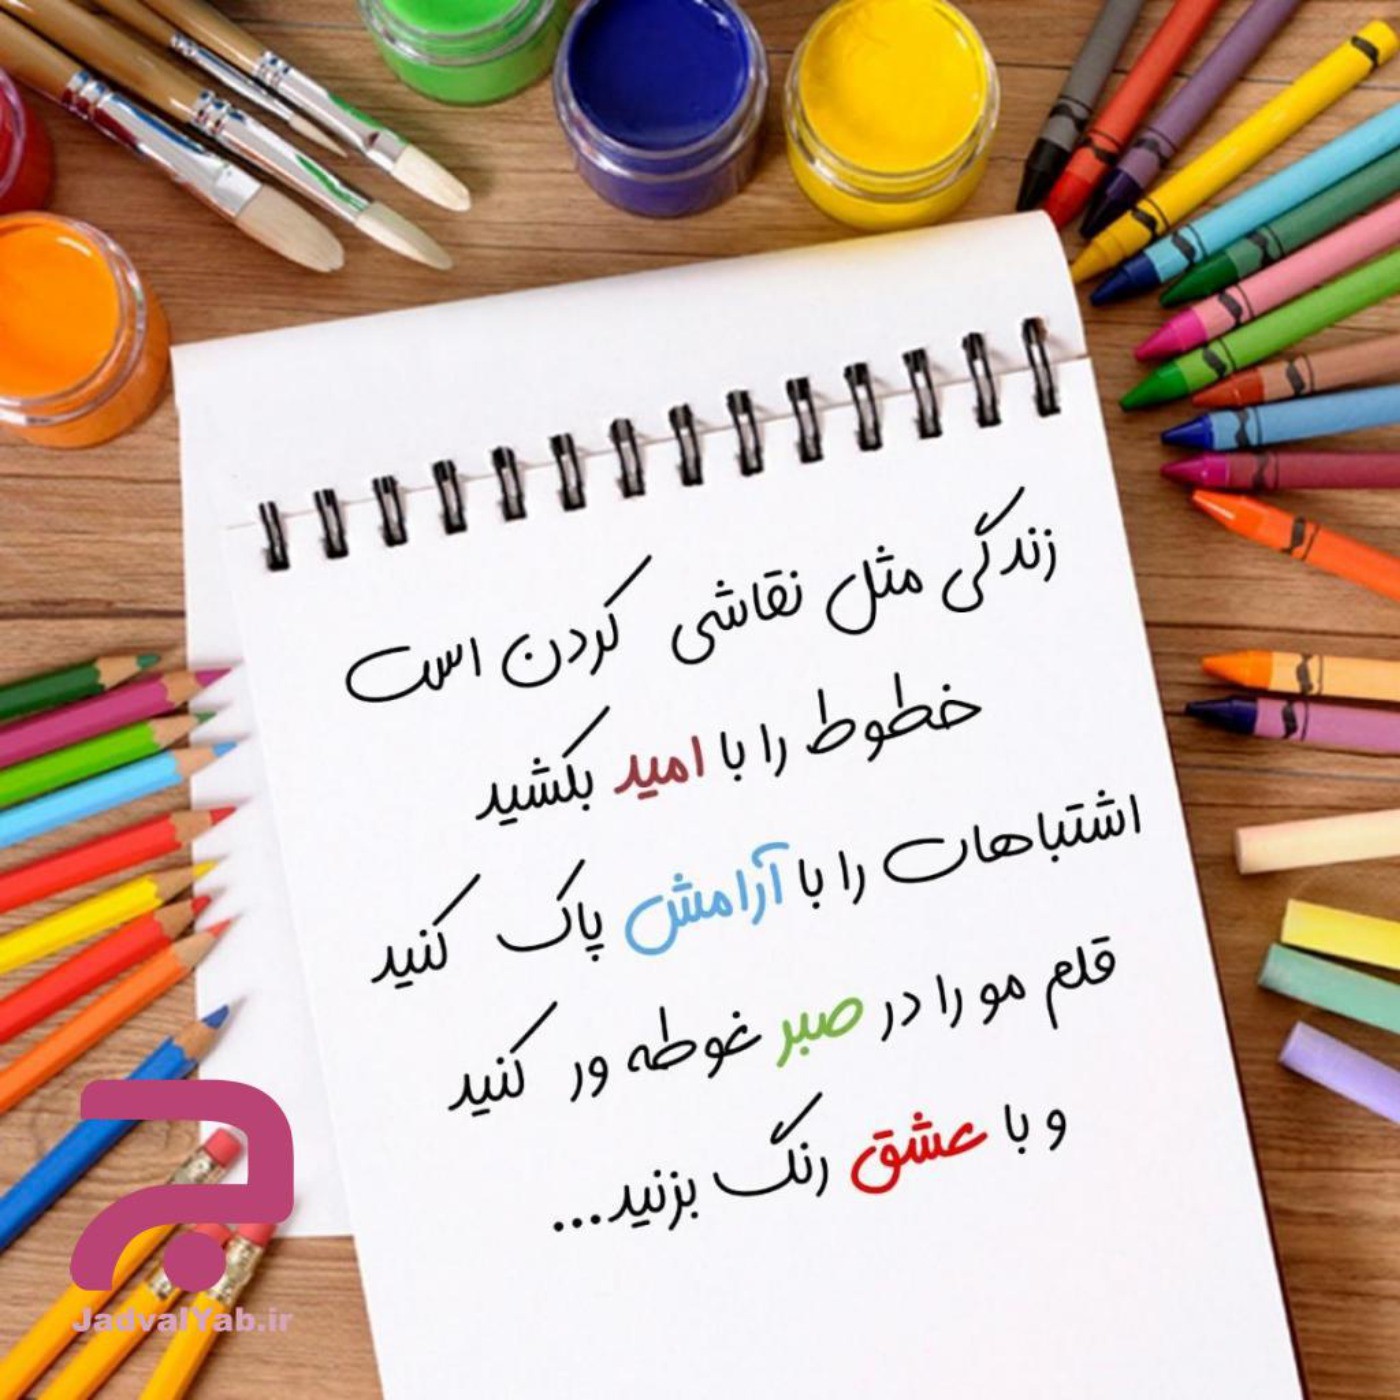 زندگی مثل نقاشی کردن است
خطوط را با امید بکشید
اشتباهات را با آرامش پاک کنید
قلم مو را در صبر غوطه ور کنید
و با عشق رنگ بزنید...
JadvalYab.ir